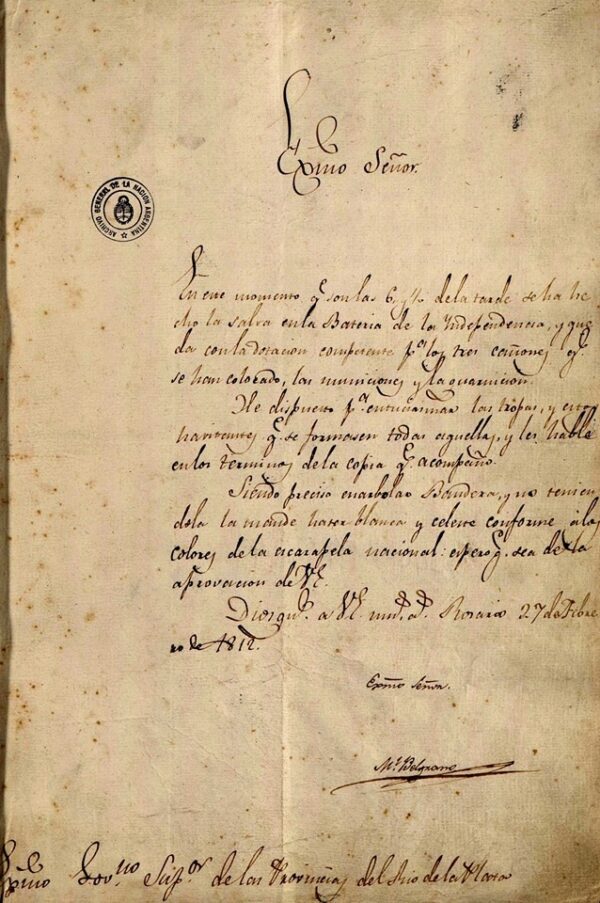 Exmo Señor.
ARCHIVO GENERAL DE LA NACION ARGENTINA
En este momento q.e son las 6 y ½ de la tarde se ha he
cho la salva en la Bateria de la Independencia, y que
da con la dotacion competente p.a los tres cañones q.e
se han colocado, las municiones y la guarnicion.
He dispuesto p.a entusiasmar las tropas, y estos
havitantes q.e se formasen todas aquellas, y les hablé
en los terminos de la copia q.e acompaño.
Siendo preciso enarbolar Bandera, y no tenien
dola la mandé hacer blanca y celeste conforme á los
colores de la escarapela nacional: espero q.e sea de la
aprovacion de VE.
Dios gu.e a VE. m.s a.s Rosario 27 de Febre
ro de 1812.
Exmo Señor.
M.l Belgrano
Exmo Gov.no Sup.or de las Provincias del Rio de la Plata